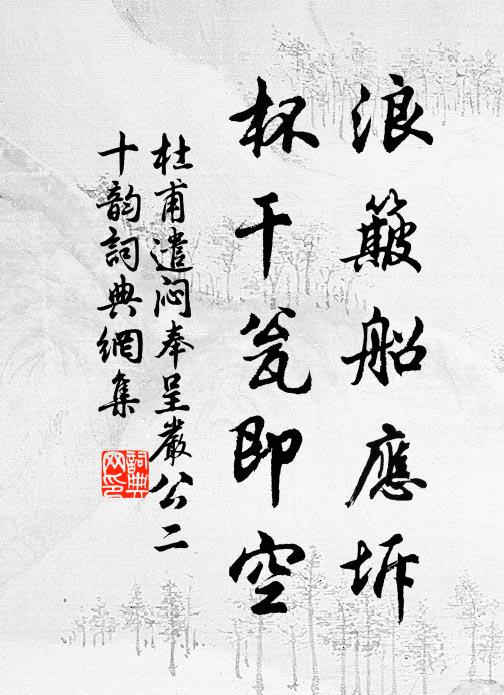 浪簸船應坼
杯干瓮即空
杜甫遣闷奉呈嚴公二
十韵詞典網集
詞典
网印